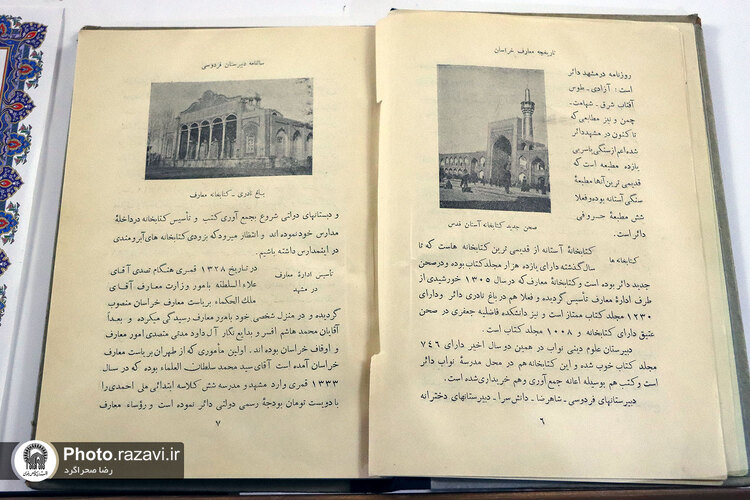 تاریخچه معارف خراسان
روزنامه در مشهد دائر
است : آزادی ـ طوس
آفتاب شرق ـ شهامت.
چمن و نیز مطابعی که
تا کنون در مشهد دائر
شده اعم از سنگی یا سربی
یازده مطبعه است که
قدیمی ترین آنها مطبعهٔ
سنگی آستانه بوده و فعلا
شش مطبعهٔ حروفی
دائر است.
صحن جدید کتابخانه آستان قدس
کتابخانه ها
کتابخانهٔ آستانه از قدیمی ترین کتابخانه هاست که تا
سال گذشته دارای یازده هزار مجلد کتاب بوده و در صحن
جدید دائر بوده است و کتابخانهٔ معارف که در سال ۱۳۰۵ خورشیدی از
طرف ادارهٔ معارف تأسیس گردیده و فعلا هم در باغ نادری دائر و دارای
۱۲۳۰ جلد کتاب ممتاز است و نیز دانشکده فاضلیه جعفری در صحن
عتیق دارای کتابخانه و ۱۰۰۸ مجلد کتاب است.
دبیرستان علوم دینی نواب در همین دو سال اخیر دارای ۷۴۶
مجلد کتاب خوب شده و این کتابخانه هم در محل مدرسهٔ نواب دائر
است و کتب هم بوسیله اعانه جمع آوری و هم خریداری شده است.
دبیرستانهای فردوسی ـ شاهرضا ـ دانش سرا ـ دبیرستانهای دخترانه
۶
سالنامه دبیرستان فردوسی
باغ نادری ـ کتابخانه معارف
و دبستانهای دولتی شروع بجمع آوری کتب و تأسیس کتابخانه در داخلهٔ
مدارس خود نموده اند و انتظار میرود که بزودی کتابخانه های آبرومندی
در اینمدارس داشته باشیم.
تأسیس ادارهٔ معارف
در مشهد
در تاریخ ۱۳۲۸ قمری هنگام تصدی آقای
علاء السلطنه بامور وزارت معارف آقای
ملك الحكماء بریاست معارف خراسان منصوب
گردیده و در منزل شخصی خود بامور معارف رسیدگی میکرده و بعداً
آقایان محمد هاشم افسر و بدایع نگار آل داود مدتی متصدی امور معارف
و اوقاف خراسان بوده اند. اولین مأموری که از طهران بریاست معارف
خراسان آمده است آقای سید محمد سلطان العلماء بوده که در سال
۱۳۳۳ قمری وارد مشهد و مدرسه شش کلاسه ابتدائی ملی احمدی را
با دویست تومان بودجهٔ رسمی دولتی دائر نموده است و رؤساء معارف
۷
Photo.razavi.ir
رضا صحراگرد